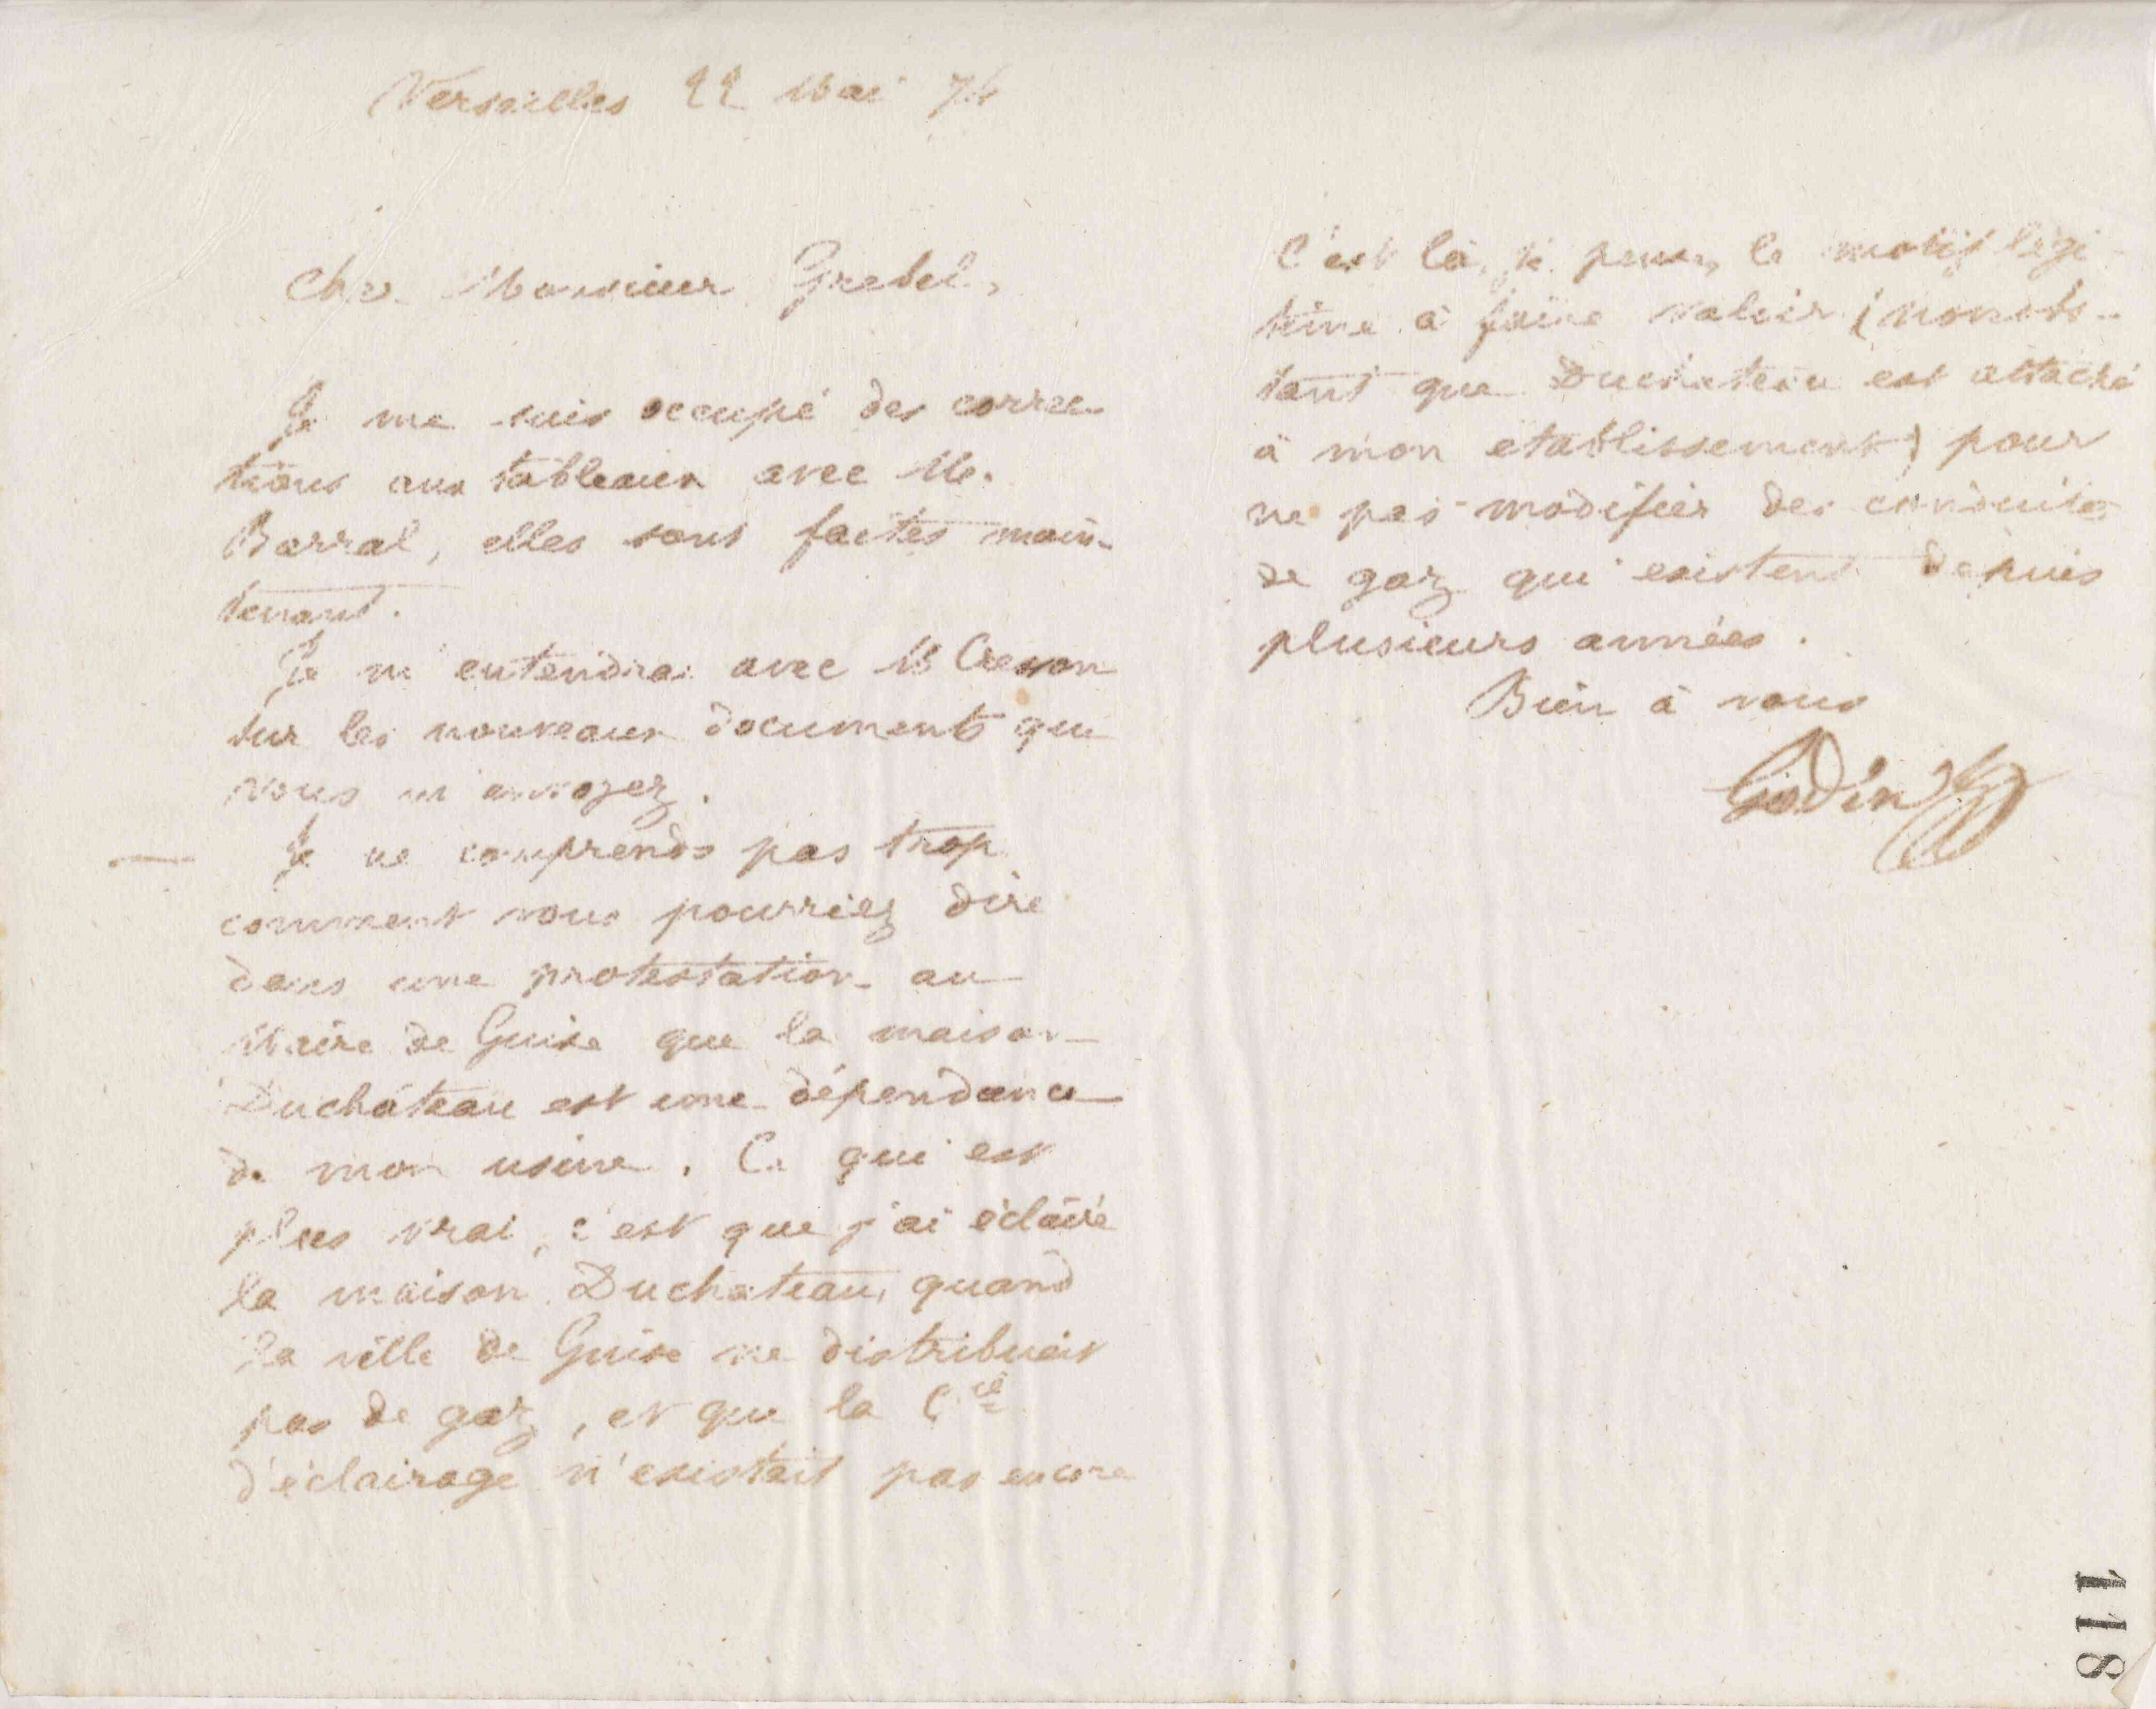 Versailles 22 Mai 74
Cher Monsieur Grebel,
Je me suis occupé des correc-
tions aux tableaux avec M.
Barral, elles sont faites main-
tenant.
Je m'entendrai avec M Cresson
sur les nouveaux documents que
vous m'envoyez.
— Je ne comprends pas trop
comment vous pourriez dire
dans une protestation au
Maire de Guise que la maison
Duchâteau est une dépendance
de mon usine. Ce qui est
plus vrai, c'est que j'ai éclairé
la maison Duchateau, quand
la ville de Guise ne distribuait
pas de gaz, et que la Cie
d'éclairage n'existait pas encore
C'est là, je pense, le motif légi-
time à faire valoir (nonobs-
tant que Duchateau est attaché
à mon etablissement) pour
ne pas modifier des conduites
de gaz qui existent depuis
plusieurs années.
Bien à vous
Godin
118